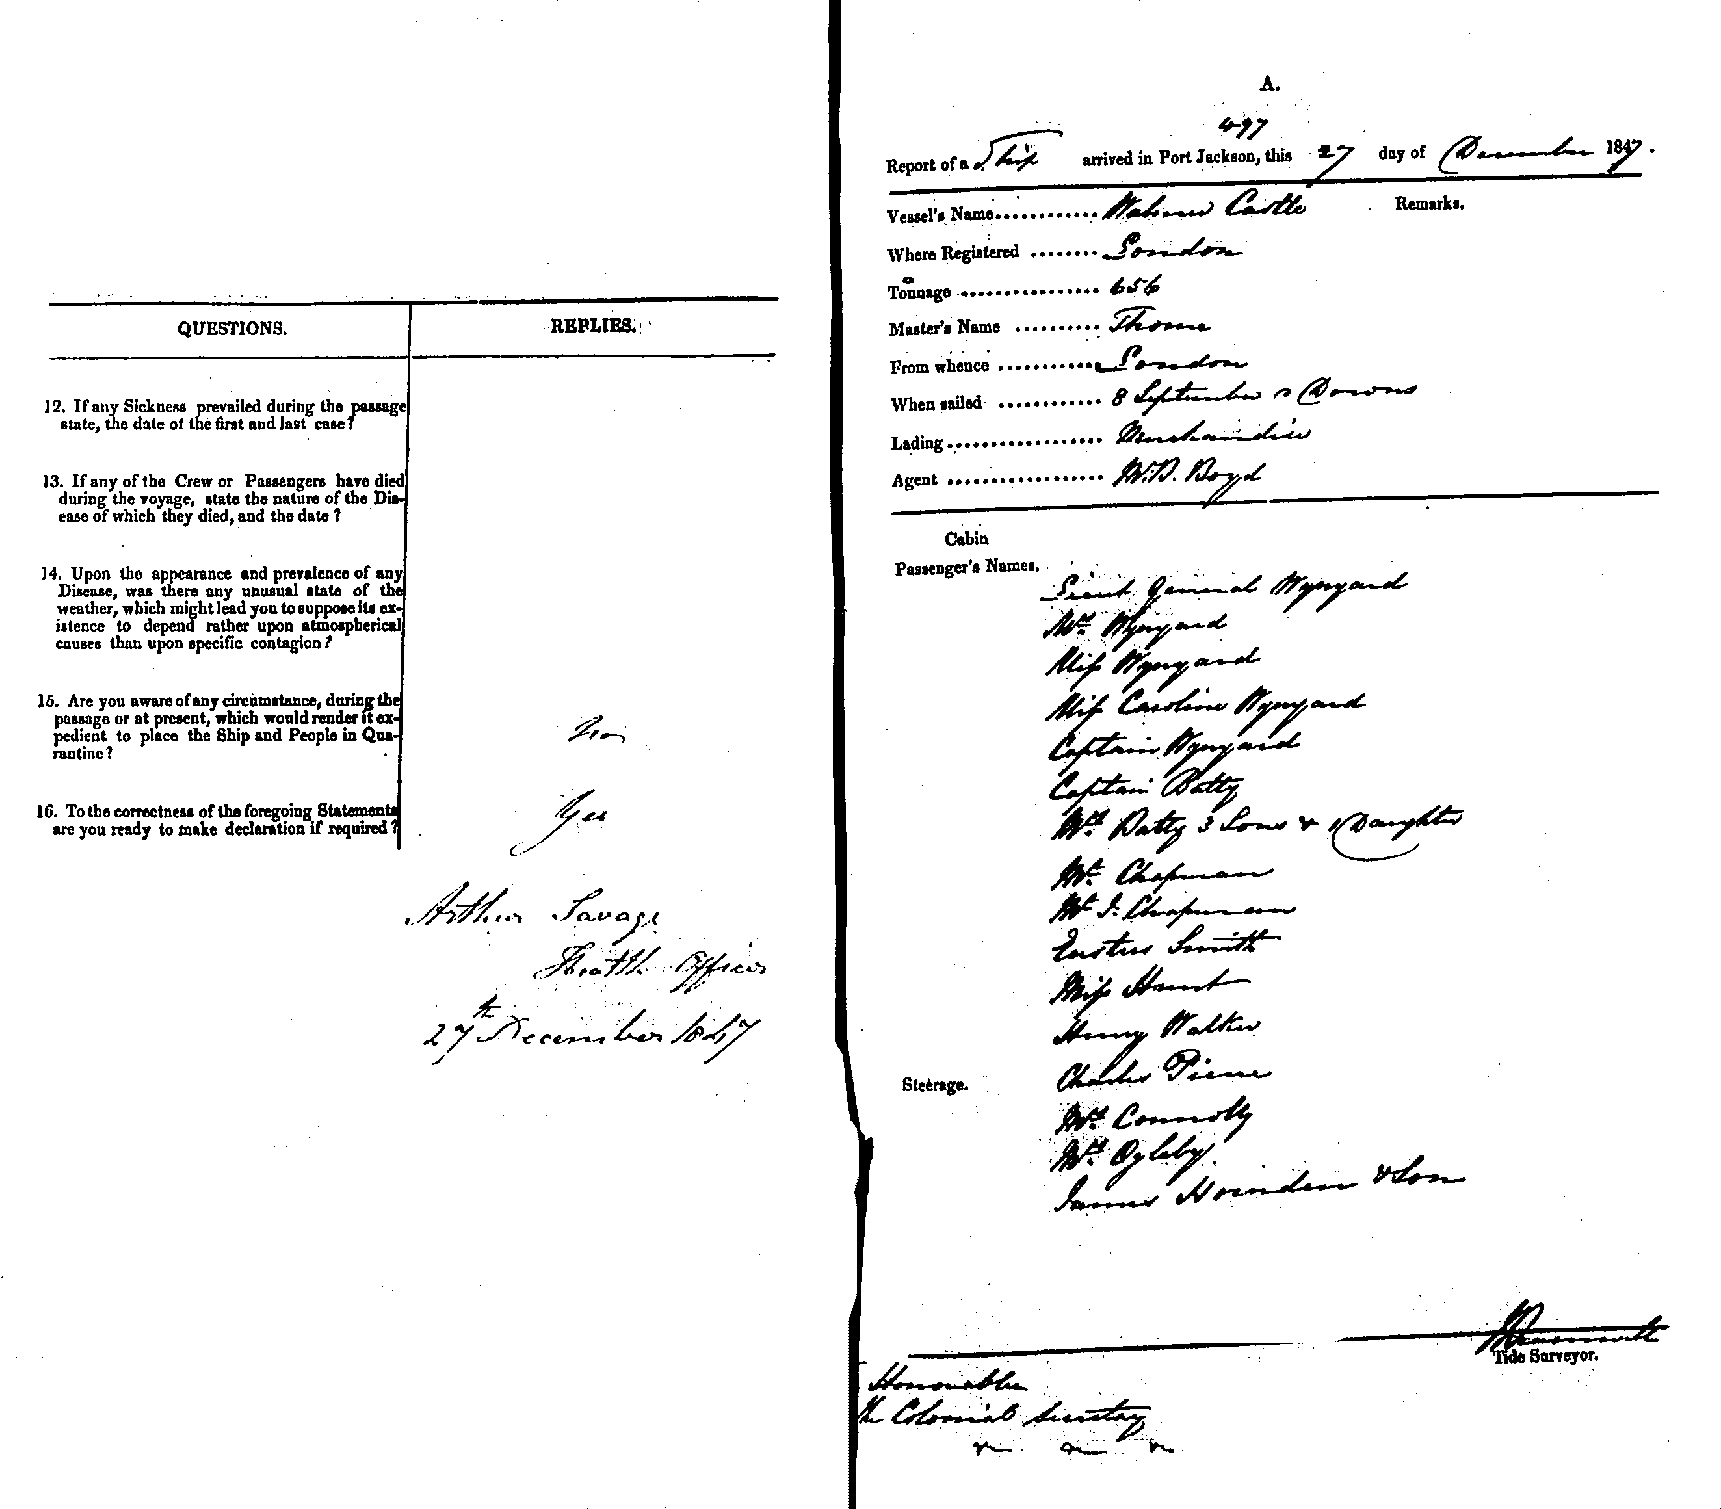 QUESTIONS. REPLIES.
12. If any Sickness prevailed during the passage
state, the date of the first and last case?
13. If any of the Crew or Passengers have died
during the voyage, state the nature of the Dis-
ease of which they died, and the date?
14. Upon the appearance and prevalence of any
Disease, was there any unusual state of the
weather, which might lead you to suppose its ex-
istence to depend rather upon atmospherical
causes than upon specific contagion?
15. Are you aware of any circumstance, during the
passage or at present, which would render it ex-
pedient to place the Ship and People in Qua-
rantine?
No
16. To the correctness of the foregoing Statements
are you ready to make declaration if required?
Yes
Arthur Savage
Health Officer
27th December 1847
A.
497
Report of a Ship arrived in Port Jackson, this 27 day of December 1847.
Vessel's Name............ Walmer Castle Remarks.
Where Registered ........ London
Tonnage ................ 656
Master's Name .......... Thorne
From whence ............ London
When sailed ............ 8 September Downs
Lading.................. Merchandise
Agent .................. Boyd
Cabin
Passenger's Names.
Lieut General Wynyard
Mrs Wynyard
Miss Wynyard
Miss Caroline Wynyard
Captain Wynyard
Captain Batty
Mrs Batty 3 Sons & 1 Daughter
Mr. Chapman
Mr J. Chapman
Smith
Miss Hunt
Henry Walker
Steerage.
Charles Pierce
Mrs Connolly
Mrs Ogleby
James & Son
Tide Surveyor.
Honorable
the Colonial Secretary